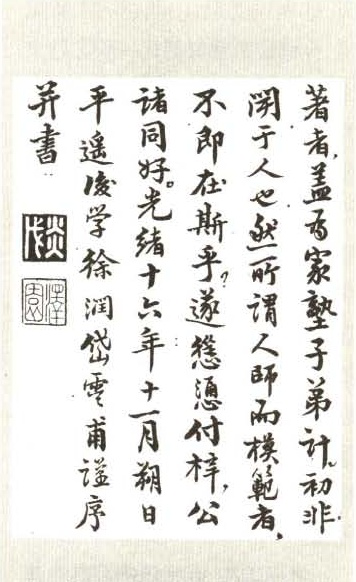 著者，蓋為家塾子弟計。初非
関于人也。然所謂人師而模範者，
不即在斯乎？遂慫慂付梓，公
諸同好。光緒十六年十一月朔日
平遙後学徐潤岱雲甫謹序
并書